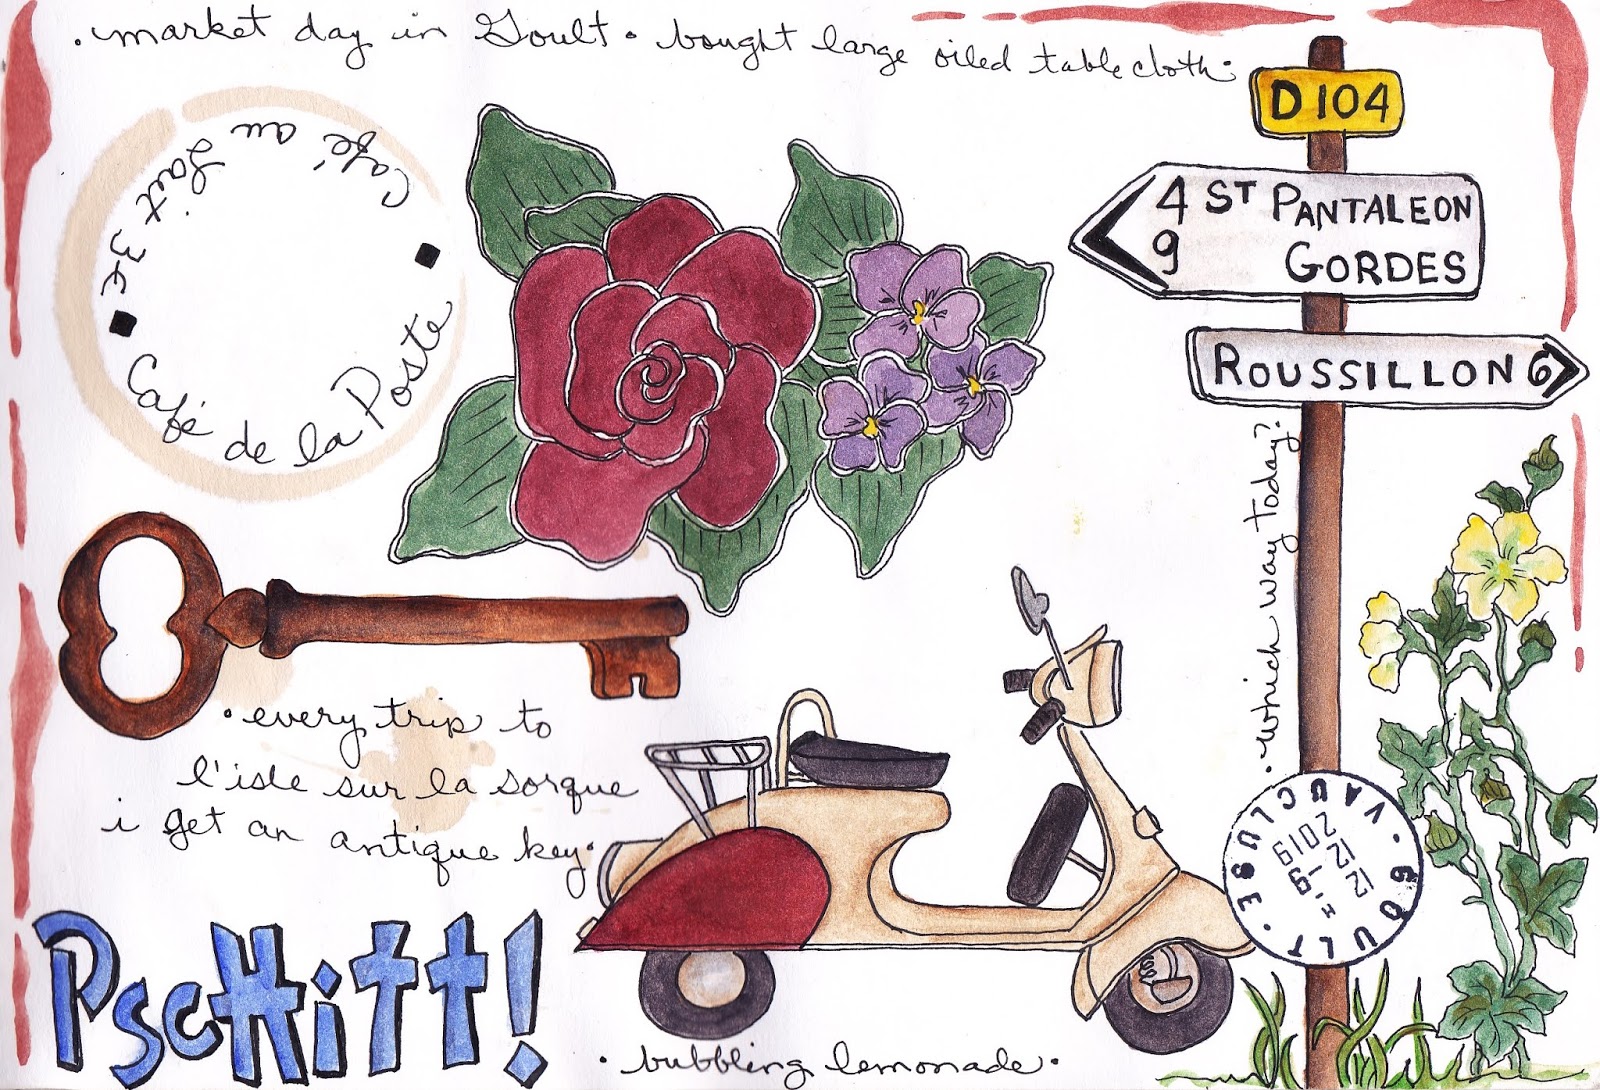 • market day in Goult • bought large oiled tablecloth •
Café au Lait 3€
Café de la Poste
D104
4 ST PANTALEON
9 GORDES
ROUSSILLON 6
• which way today?
• every trip to
l'isle sur la sorque
i get an antique key •
PscHitt!
• bubbling lemonade •
GOULT • VAUCLUSE
2019
12 12
H -9